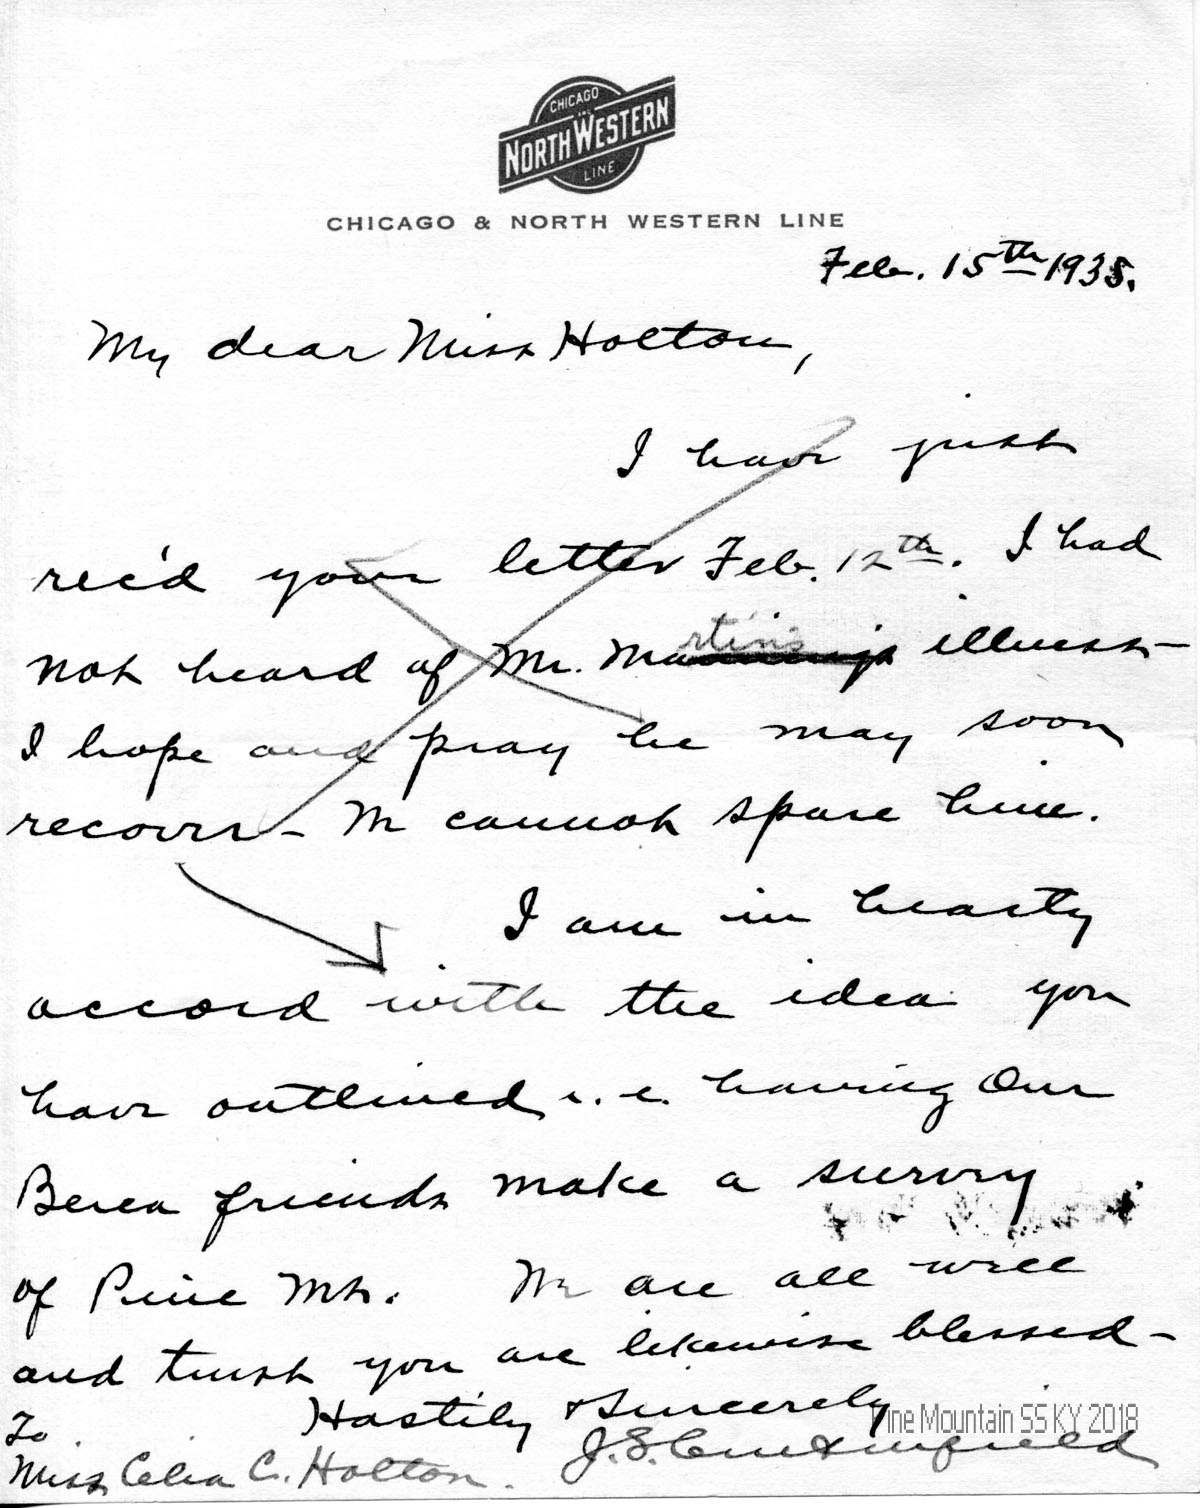 CHICAGO
THE
NORTH WESTERN
LINE
CHICAGO & NORTH WESTERN LINE
Feb. 15th 1935.
My dear Miss Holton,
I have just
rec'd your letter Feb. 12th. I had
not heard of Mr. Martin's illness -
I hope and pray he may soon
recover - We cannot spare him.
I am in hearty
accord with the idea you
have outlined i.e. having Our
Berea friends make a survey
of Pine Mt. We are all well
and trust you are likewise blessed -
Hastily & Sincerely
Pine Mountain SS KY 2018
To
Miss Celia C. Holton. J. S.